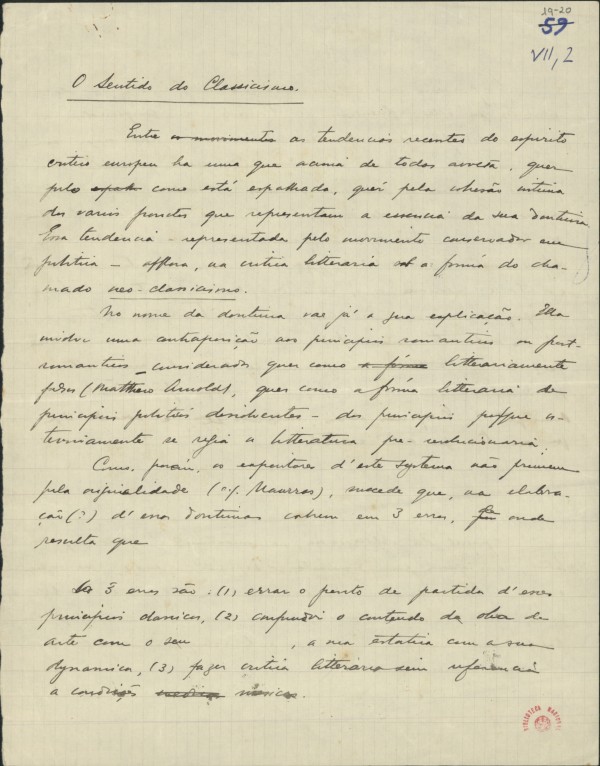 19-20
59
VII, 2
O Sentido do Classicismo.
Entre os movimentos as tendencias recentes do espirito
critico europeu ha uma que acima de todas avulta, quer
pelo como está espalhada, quér pela cohesão intima
dos varios pontos que representam a essencia da sua doutrina.
Essa tendencia - representada pelo movimento conservador em
politica - afflora, na critica litteraria sob a fórma do cha-
mado neo-classicismo.
No nome da doutrina vae já a sua explicação. Ella
involve uma contraposição aos principios romanticos ou post-
romanticos - considerados quer como a fórma litterariamente
(Matthew Arnold), quer como a fórma litteraria de
principios politicos dissolventes - dos principios porque an-
teriormente se regia a litteratura pre-revolucionaria.
Como, porém, os expositores d'este systema não primem
pela originalidade (Maurras), succede que, na elabora-
ção (?) d'essas doutrinas cahem em 3 erros, de onde
resulta que
Os 3 erros são: (1) errar o ponto de partida d'esses
principios classicos, (2) confundir o conteudo da obra de
arte com o seu , a sua estatica com a sua
dynamica, (3) fazer critica litteraria sem referencia
a condições
BIBLIOTECA NACIONAL